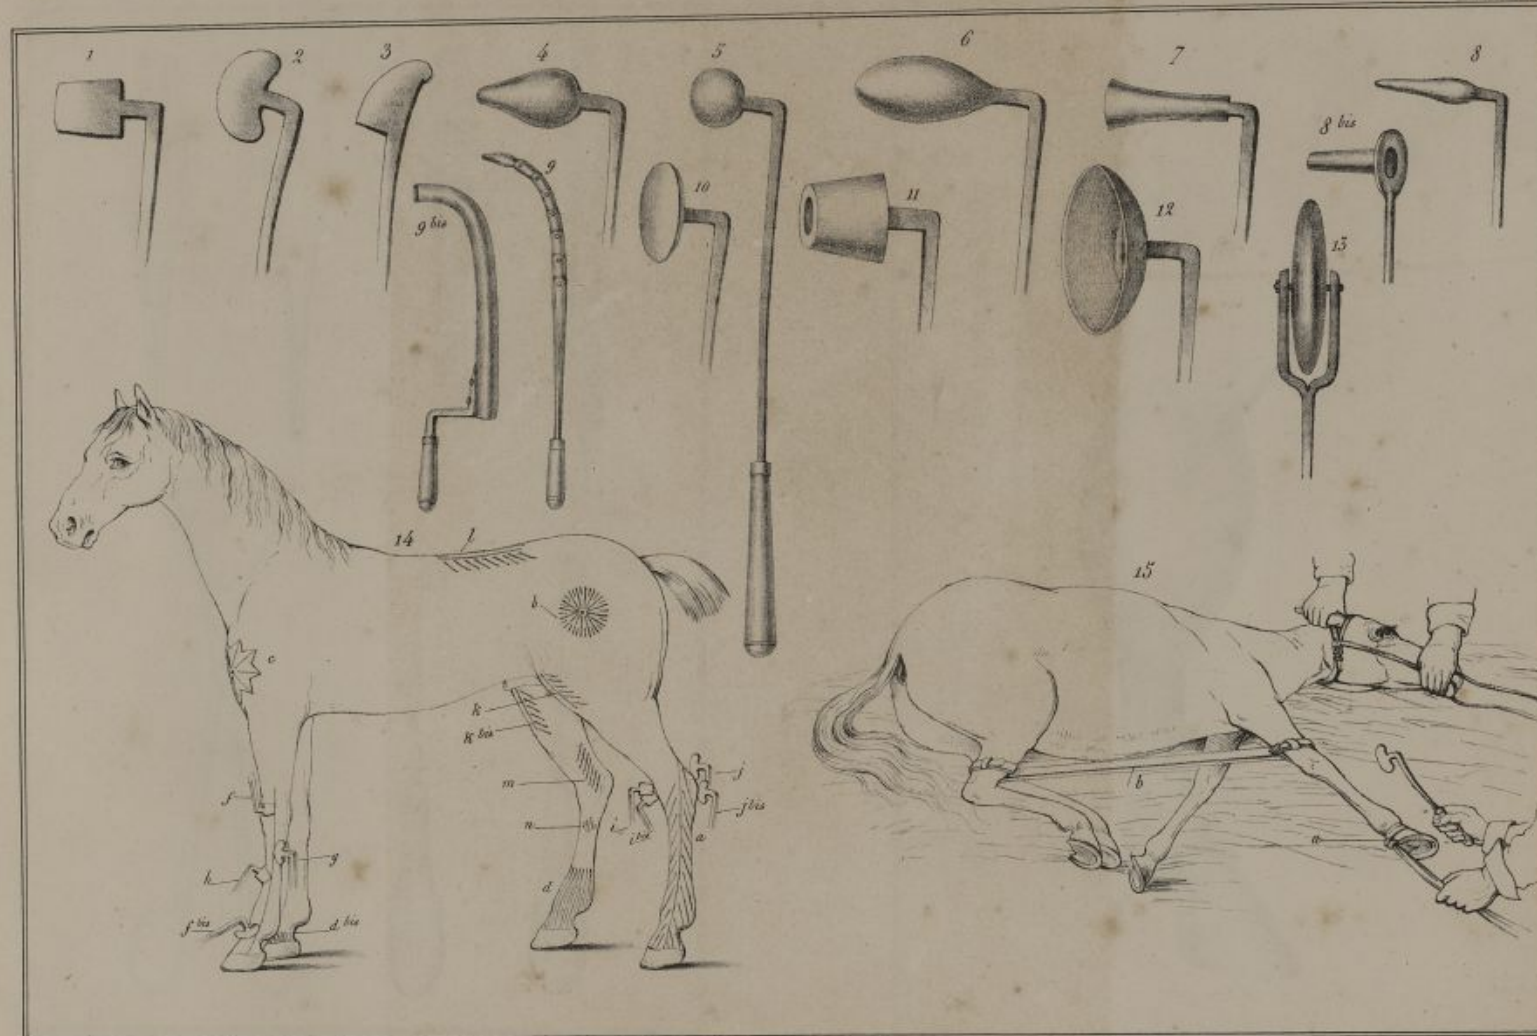 1
2
3
4
5
6
7
8
8 bis
9
9 bis
10
11
12
13
14
l
b
c
k
k bis
m
n
i
i bis
j
j bis
a
d
f
g
h
f bis
d bis
15
b
a